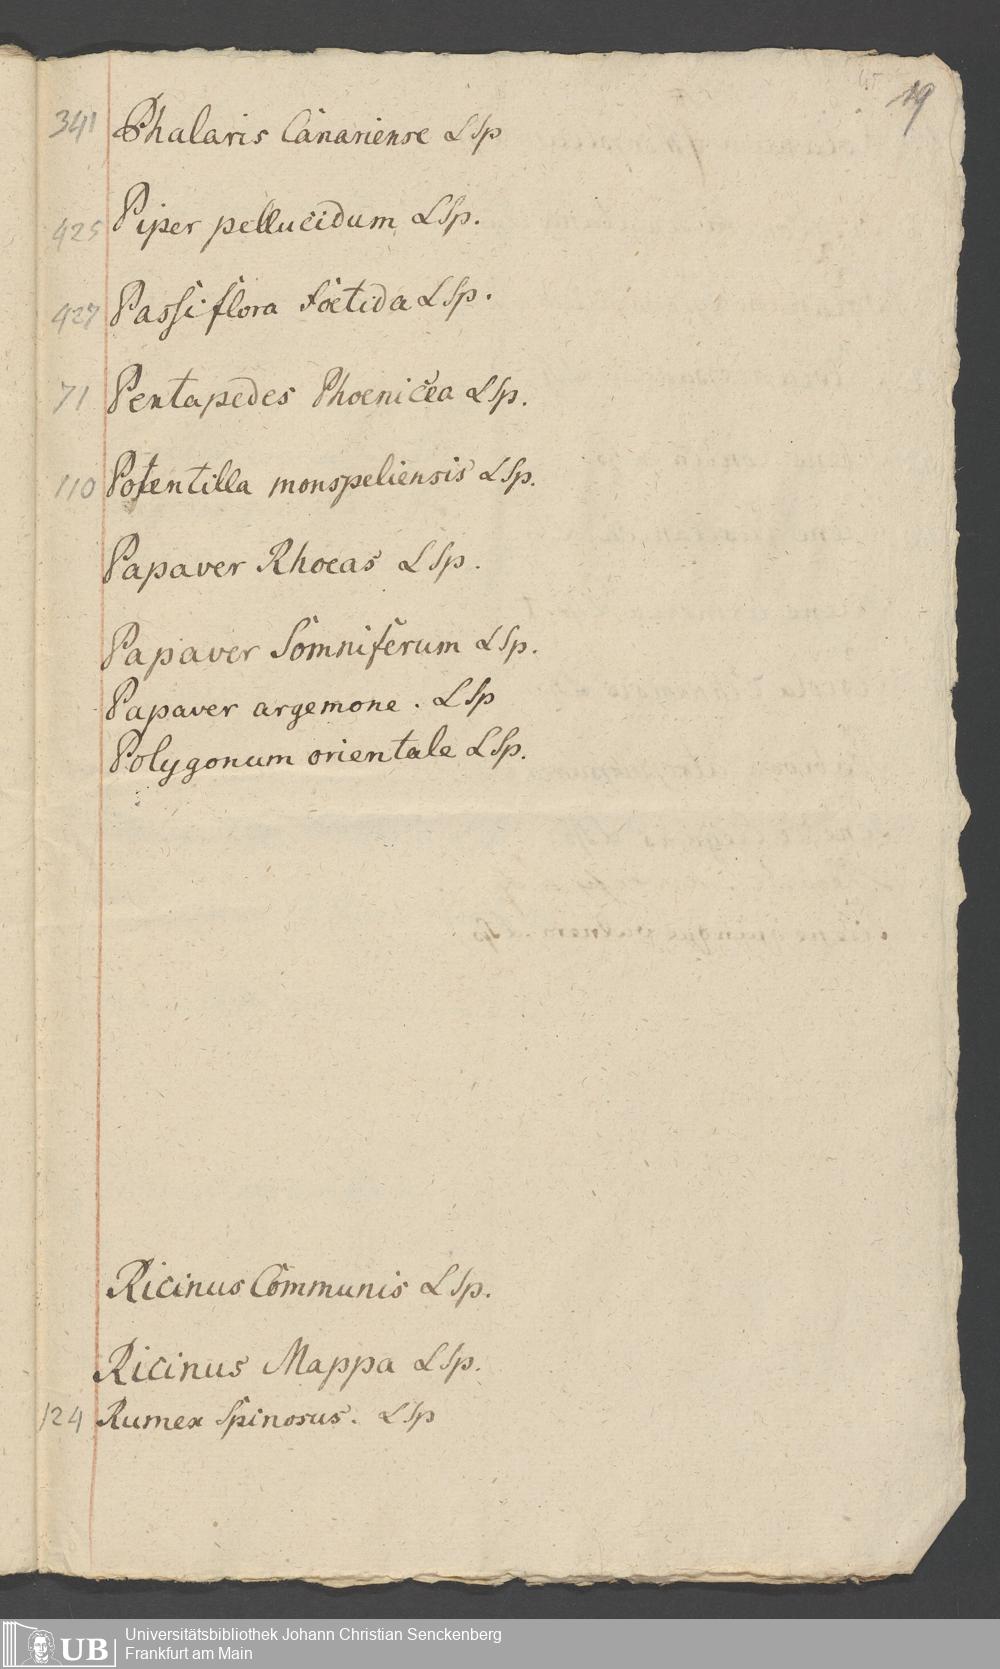 45
19
341 Phalaris Canariense L Sp
425 Piper pellucidum L Sp.
427 Passiflora foetida L Sp.
71 Pentapedes Phoenicea L Sp.
110 Potentilla monspeliensis L Sp.
Papaver Rhoeas L Sp.
Papaver Somniferum L Sp.
Papaver argemone. L Sp
Polygonum orientale L Sp.
Ricinus Communis L Sp.
Ricinus Mappa L Sp.
124 Rumex Spinosus. L Sp
UB Universitätsbibliothek Johann Christian Senckenberg
Frankfurt am Main